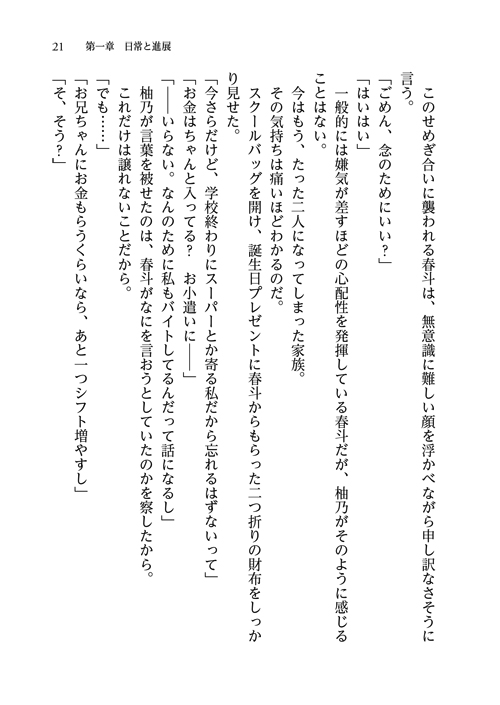 21　第一章　日常と進展
　このせめぎ合いに襲われる春斗は、無意識に難しい顔を浮かべながら申し訳なさそうに
言う。
「ごめん、念のためにいい？」
「はいはい」
　一般的には嫌気が差すほどの心配性を発揮している春斗だが、柚乃がそのように感じる
ことはない。
　今はもう、たった二人になってしまった家族。
　その気持ちは痛いほどわかるのだ。
　スクールバッグを開け、誕生日プレゼントに春斗からもらった二つ折りの財布をしっか
り見せた。
「今さらだけど、学校終わりにスーパーとか寄る私だから忘れるはずないって」
「お金はちゃんと入ってる？　お小遣いに――」
「――いらない。なんのために私もバイトしてるんだって話になるし」
　柚乃が言葉を被せたのは、春斗がなにを言おうとしていたのかを察したから。
　これだけは譲れないことだから。
「でも……」
「お兄ちゃんにお金もらうくらいなら、あと一つシフト増やすし」
「そ、そう？」